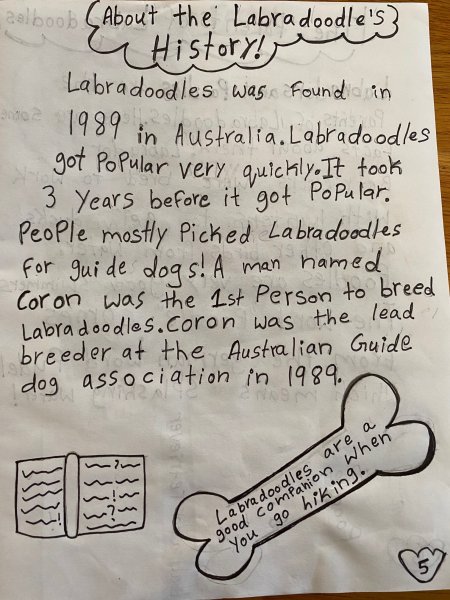 About the Labradoodle's
History!
Labradoodles was found in
1989 in Australia. Labradoodles
got PoPular very quickly. It took
3 Years before it got PoPular.
PeoPle mostly Picked Labradoodles
for guide dogs! A man named
Coron was the 1st Person to breed
Labradoodles. Coron was the lead
breeder at the Australian Guide
dog association in 1989.
Labradoodles are a
good companion when
You go hiking.
5